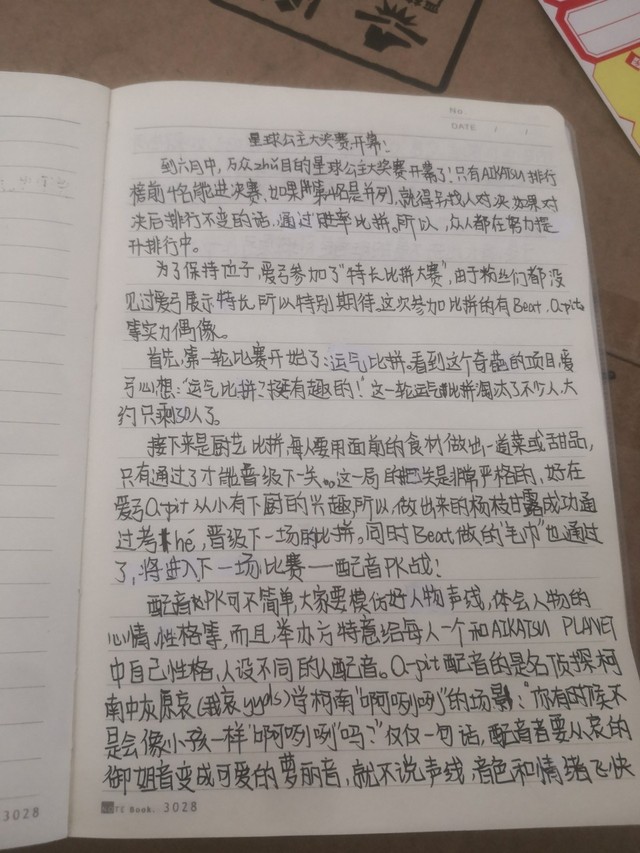 No.
DATE / /
星球公主大奖赛,开幕!
到六月中,万众zhǔ目的星球公主大奖赛开幕了!只有AIKATSU排行
榜前4名能进决赛,如果第4名是并列,就得另找人对决,如果对
决后排行不变的话,通过胜率比拼。所以,众人都在努力提
升排行中。
为了保持位子,爱弓参加了“特长比拼大赛”,由于粉丝们都没
见过爱弓展示特长,所以特别期待。这次参加比拼的有Beat、Q-pit
等实力偶像。
首先,第一轮比赛开始了:运气比拼。看到这个奇葩的项目,爱
弓心想:“运气比拼?挺有趣的!”这一轮运气比拼淘汰了不少人,大
约只剩30人了。
接下来是厨艺比拼,每人要用面前的食材做出一道菜或甜品,
只有通过了才能晋级下一关。这一局的把关是非常严格的,好在
爱弓Q-pit从小有下厨的兴趣,所以,做出来的杨枝甘露成功通
过考hé,晋级下一场的比拼。同时Beat做的“毛巾”也通过
了,将进入下一场比赛——配音PK战!
配音PK可不简单,大家要模仿好人物声线,体会人物的
心情,性格等,而且,举办方特意给每人一个和AIKATSU PLANET
中自己性格,人设不同的人配音。Q-pit配音的是名侦探柯
南中灰原哀(我哀yyds)学柯南“啊咧咧”的场景:“你有时候不
是会像小孩一样‘啊咧咧’吗?”仅仅一句话,配音者要从哀的
御姐音变成可爱的萝丽音,就不说声线,音色和情绪飞快
NOTE Book. 3028
3028